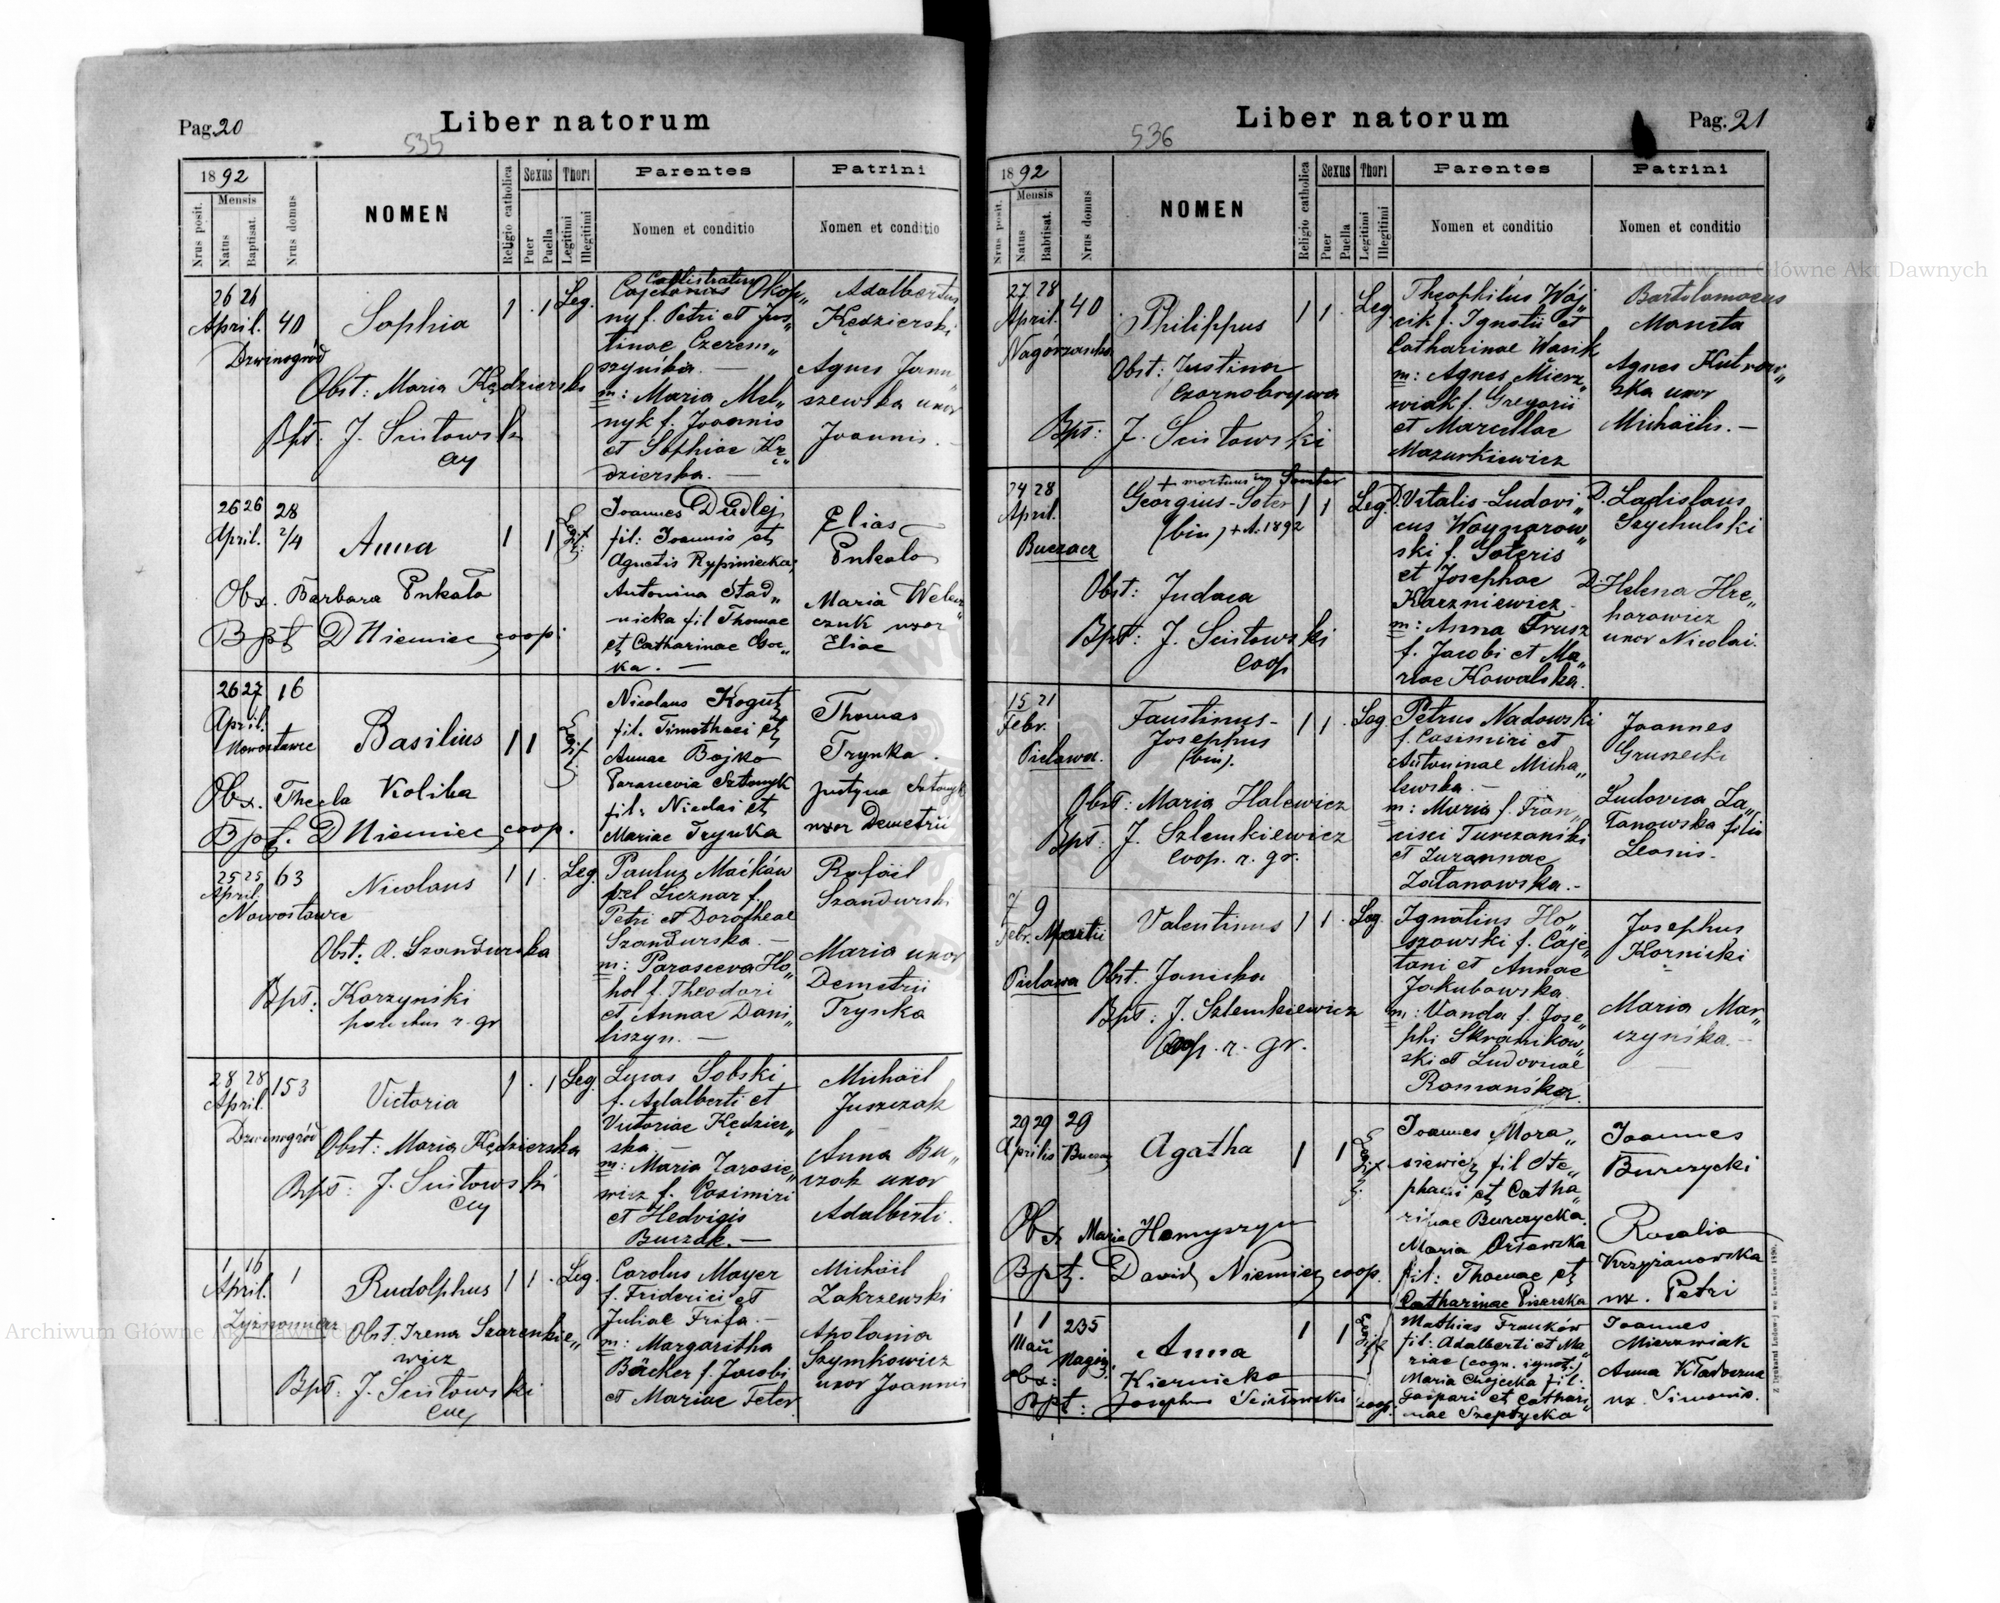 Pag. 20
Liber natorum
535
1892
Mensis
Nrus posit.
Natus
Baptisat.
Nrus domus
NOMEN
Religio catholica
Sexus
Puer
Puella
Thori
Legitimi
Illegitimi
Parentes
Nomen et conditio
Patrini
Nomen et conditio
26 26
April. 40
Dzwinogród
Sophia
1 . 1 Leg.
Obst: Maria Kędzierska
Bpt. J. Scisłowski
Cajetanus Okop„
ny f. Petri et Jus„
tinae Czerem„
szyńska. —
m: Maria Mel„
nyk f. Joannis
et Sophiae Kę„
dzierska. —
Adalbertus
Kędzierski
Agnes Janu„
szewska uxor
Joannis. —
26 26 28
April. 2/4
Anna
1 1
Obx. Barbara Pukało
Bpt. D Niemiec coop.
Joannes Dudlej
fil: Joannis et
Agnetis Rypiniecka;
Antonina Stad„
nicka fil Thomae
et Catharinae
Elias
Pukało
Maria
czuk uxor
Eliae
26 27 16
April.
Nowostawce
Basilius
1 1
Obx. Thecla Koliba
Bpt. D Niemiec coop.
Nicolaus Kogut
fil. Timothaei et
Annae Bojko
Parascevia Sztonyk
fil. Nicolai et
Mariae Trynka
Thomas
Trynka.
Justyna Sztonyk
uxor Demetrii
25 25 63
April
Nowostawce
Nicolaus
1 1 . Leg.
Obst: A. Szandurska
Bpt: Korzyński
parochus r. gr
Paulus Maćków
vel Licznar f.
Petri et Dorotheae
Szandurska. —
m: Parasceva Ho„
hol f. Theodori
et Annae Dani„
liszyn. —
Rafaël
Szandurski
Maria uxor
Demetrii
Trynka
28 28 153
April.
Dzwinogród
Victoria
1 . 1 Leg.
Obst: Maria Kędzierska
Bpt: J. Scisłowski
Lucas Sobski
f. Adalberti et
Victoriae Kędzier„
ska. —
m: Maria Jarosie„
wicz f. Casimiri
et Hedvigis
Buczak. —
Michaël
Juszczak
Anna Bu„
czak uxor
Adalberti.
1 16 1
April.
Rudolphus
1 1 . Leg.
Obst. Irena Szarenkie„
wicz
Bpt: J. Scisłowski
Carolus Mayer
f. Friderici et
Juliae
m: Margaritha
Bäcker f. Jacobi
et Mariae Feter
Michaël
Zakrzewski
Apolonia
Szymkowicz
uxor Joannis
Pag. 21
Liber natorum
536
1892
Mensis
Nrus posit.
Natus
Babtisat.
Nrus domus
NOMEN
Religio catholica
Sexus
Puer
Puella
Thori
Legitimi
Illegitimi
Parentes
Nomen et conditio
Patrini
Nomen et conditio
27 28
April. 40
Nagórzanka
Philippus
1 1 . Leg
Obst: Justina
Czornobrywa
Bpt: J. Scisłowski
Theophilus Wój„
cik f. Ignatii et
Catharinae Wasik
m: Agnes Mierz„
wiak f. Gregorii
et Marcellae
Mazurkiewicz
Bartolomaeus
Maneta
Agnes
ska uxor
Michaëlis. —
24 28
April.
Buczacz
+ mortuus
Georgius-Soter
(bin) 1892
1 1 Leg.
Obst: Judaea
Bpt: J. Scisłowski
Coop
D. Vitalis-Ludovi„
cus Waynarow„
ski f. Soteris
et Josephae
Karzniewicz.
m: Anna Trusz
f. Jacobi et Ma„
riae Kowalska.
D. Ladislaus
Grychulski
D. Helena Hre„
horowicz
uxor Nicolai.
15 21
Febr.
Pielawa.
Faustinus-
Josephus
(bin).
1 1 . Leg
Obst: Maria Halewicz
Bpt: J. Szlemkiewicz
coop. r. gr.
Petrus Nadowski
f. Casimiri et
Antoninae Micha„
lewska. —
m: Maria f. Fran„
cisci Turczański
et Zuzannae
Zatanowska. -
Joannes
Gruszecki
Ludovica Za„
tanowska filia
Leonis. -
7 9
Febr. Martii
Pielawa
Valentinus
1 1 . Leg.
Obst. Janicka
Bpt: J. Szlemkiewicz
Coop. r. gr.
Ignatius Ho„
szowski f. Caje„
tani et Annae
Jakubowska.
m: Vanda f. Jose„
phi Skromikow„
ski et Ludovicae
Romańska.
Josephus
Kornicki
Maria Mar„
czyńska. —
29 29 29
Aprilis
Agatha
1 1
Obx Maria Hamyszyn
Bpt. David Niemiec coop.
Joannes Mora„
siewicz fil Ste„
phani et Catha„
rinae Burczycka.
Maria Orłowska
fil: Thomae et
Catharinae Pisarska
Joannes
Burczycki
Rosalia
Krzyżanowska
ux. Petri
1 1 235
Maii
Anna
1 1
Obx: Kiernicka
Bpt: Josephus Scisłowski coop.
Mathias Franków
fil: Adalberti et Ma„
riae (cogn. ignot.)
Maria Chojecka fil:
Gaspari et Cathari„
nae Szeptycka
Joannes
Mierzwiak
Anna
ux. Simonis.
Archiwum Główne Akt Dawnych
Archiwum Główne Akt Dawnych